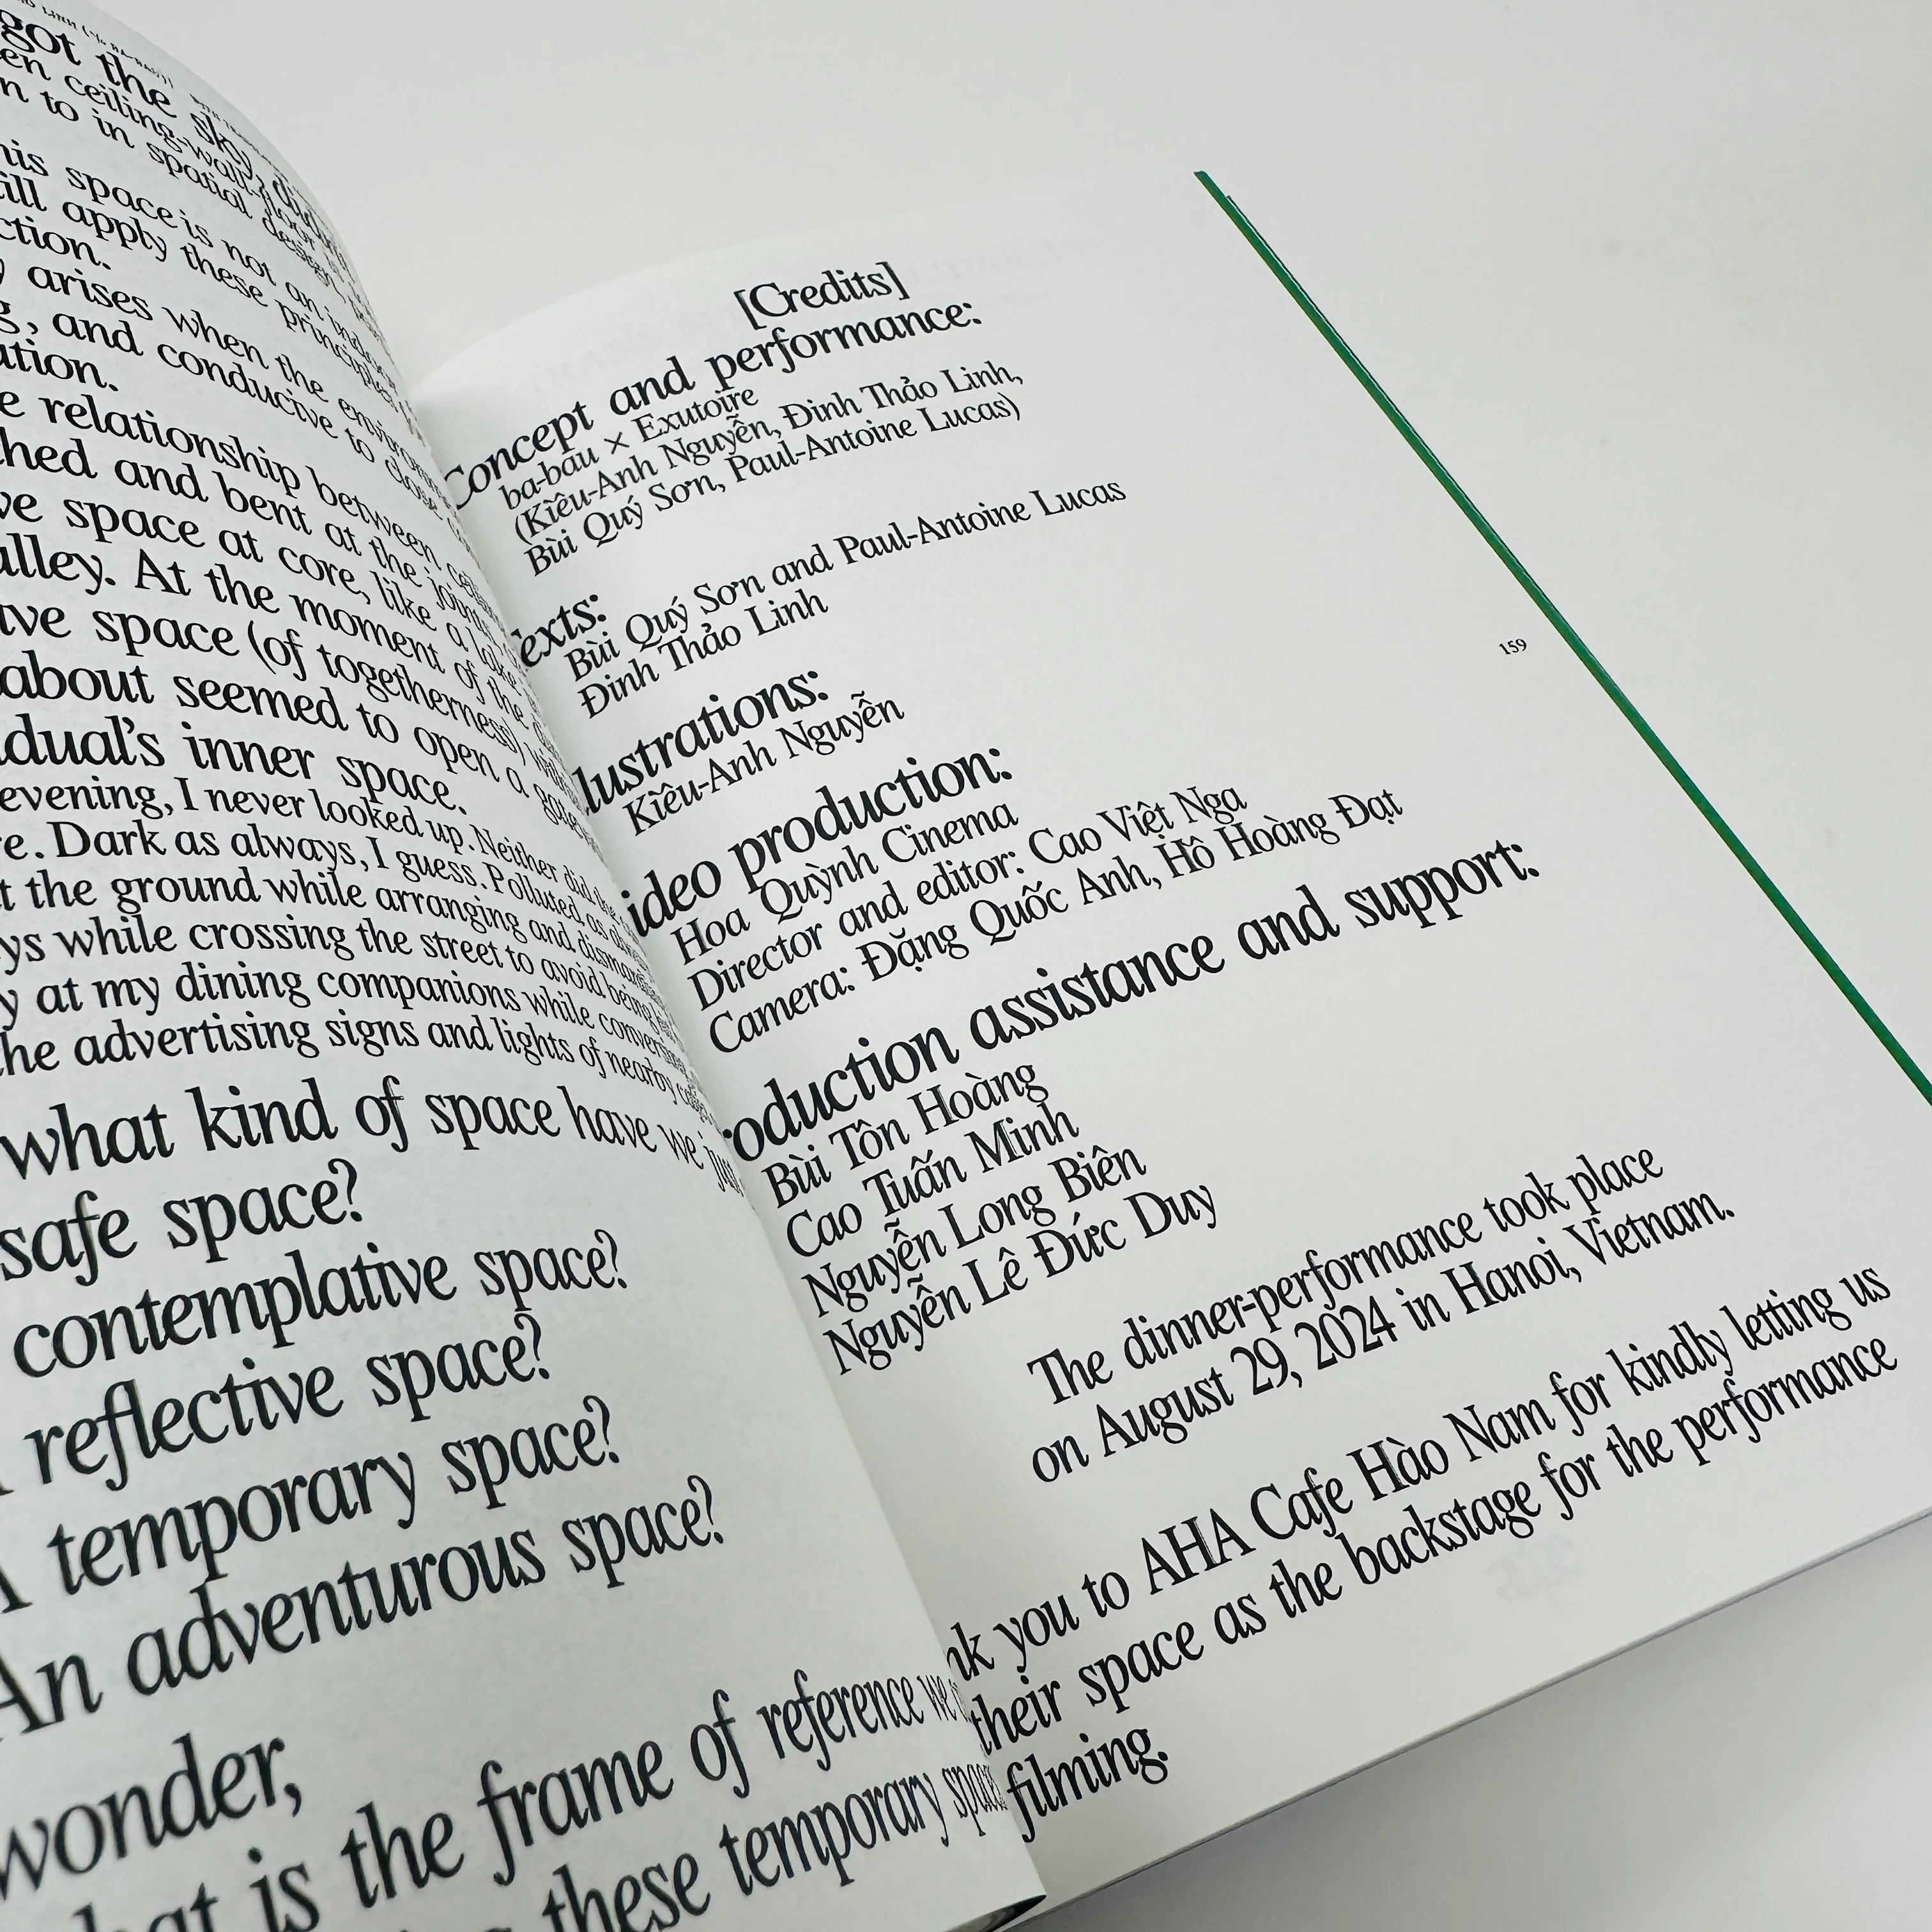 got the sky,
en ceiling-wall-floor
n to in spatial design,
his space is not an indoor
ill apply these principles
ction.
y arises when the
g, and conducive to close
ation.
e relationship between
hed and bent at the joints
ve space at core, like a lake
alley. At the moment of the
ave space (of togetherness)
about seemed to open a
dual's inner space.
evening, I never looked up. Neither did
re. Dark as always, I guess. Polluted as
t the ground while arranging and
ys while crossing the street to avoid being
y at my dining companions while
he advertising signs and lights of nearby
what kind of space have we just
safe space?
contemplative space?
reflective space?
A temporary space?
An adventurous space?
wonder,
hat is the frame of reference we
these temporary
[Credits]
Concept and performance:
ba-bau × Exutoire
(Kiều-Anh Nguyễn, Đinh Thảo Linh,
Bùi Quý Sơn, Paul-Antoine Lucas)
exts:
Bùi Quý Sơn and Paul-Antoine Lucas
Đinh Thảo Linh
llustrations:
Kiều-Anh Nguyễn
ideo production:
Hoa Quỳnh Cinema
Director and editor: Cao Việt Nga
Camera: Đặng Quốc Anh, Hồ Hoàng Đạt
roduction assistance and support:
Bùi Tôn Hoàng
Cao Tuấn Minh
Nguyễn Long Biên
Nguyễn Lê Đức Duy
The dinner-performance took place
on August 29, 2024 in Hanoi, Vietnam.
nk you to AHA Cafe Hào Nam for kindly letting us
their space as the backstage for the performance
filming.
159